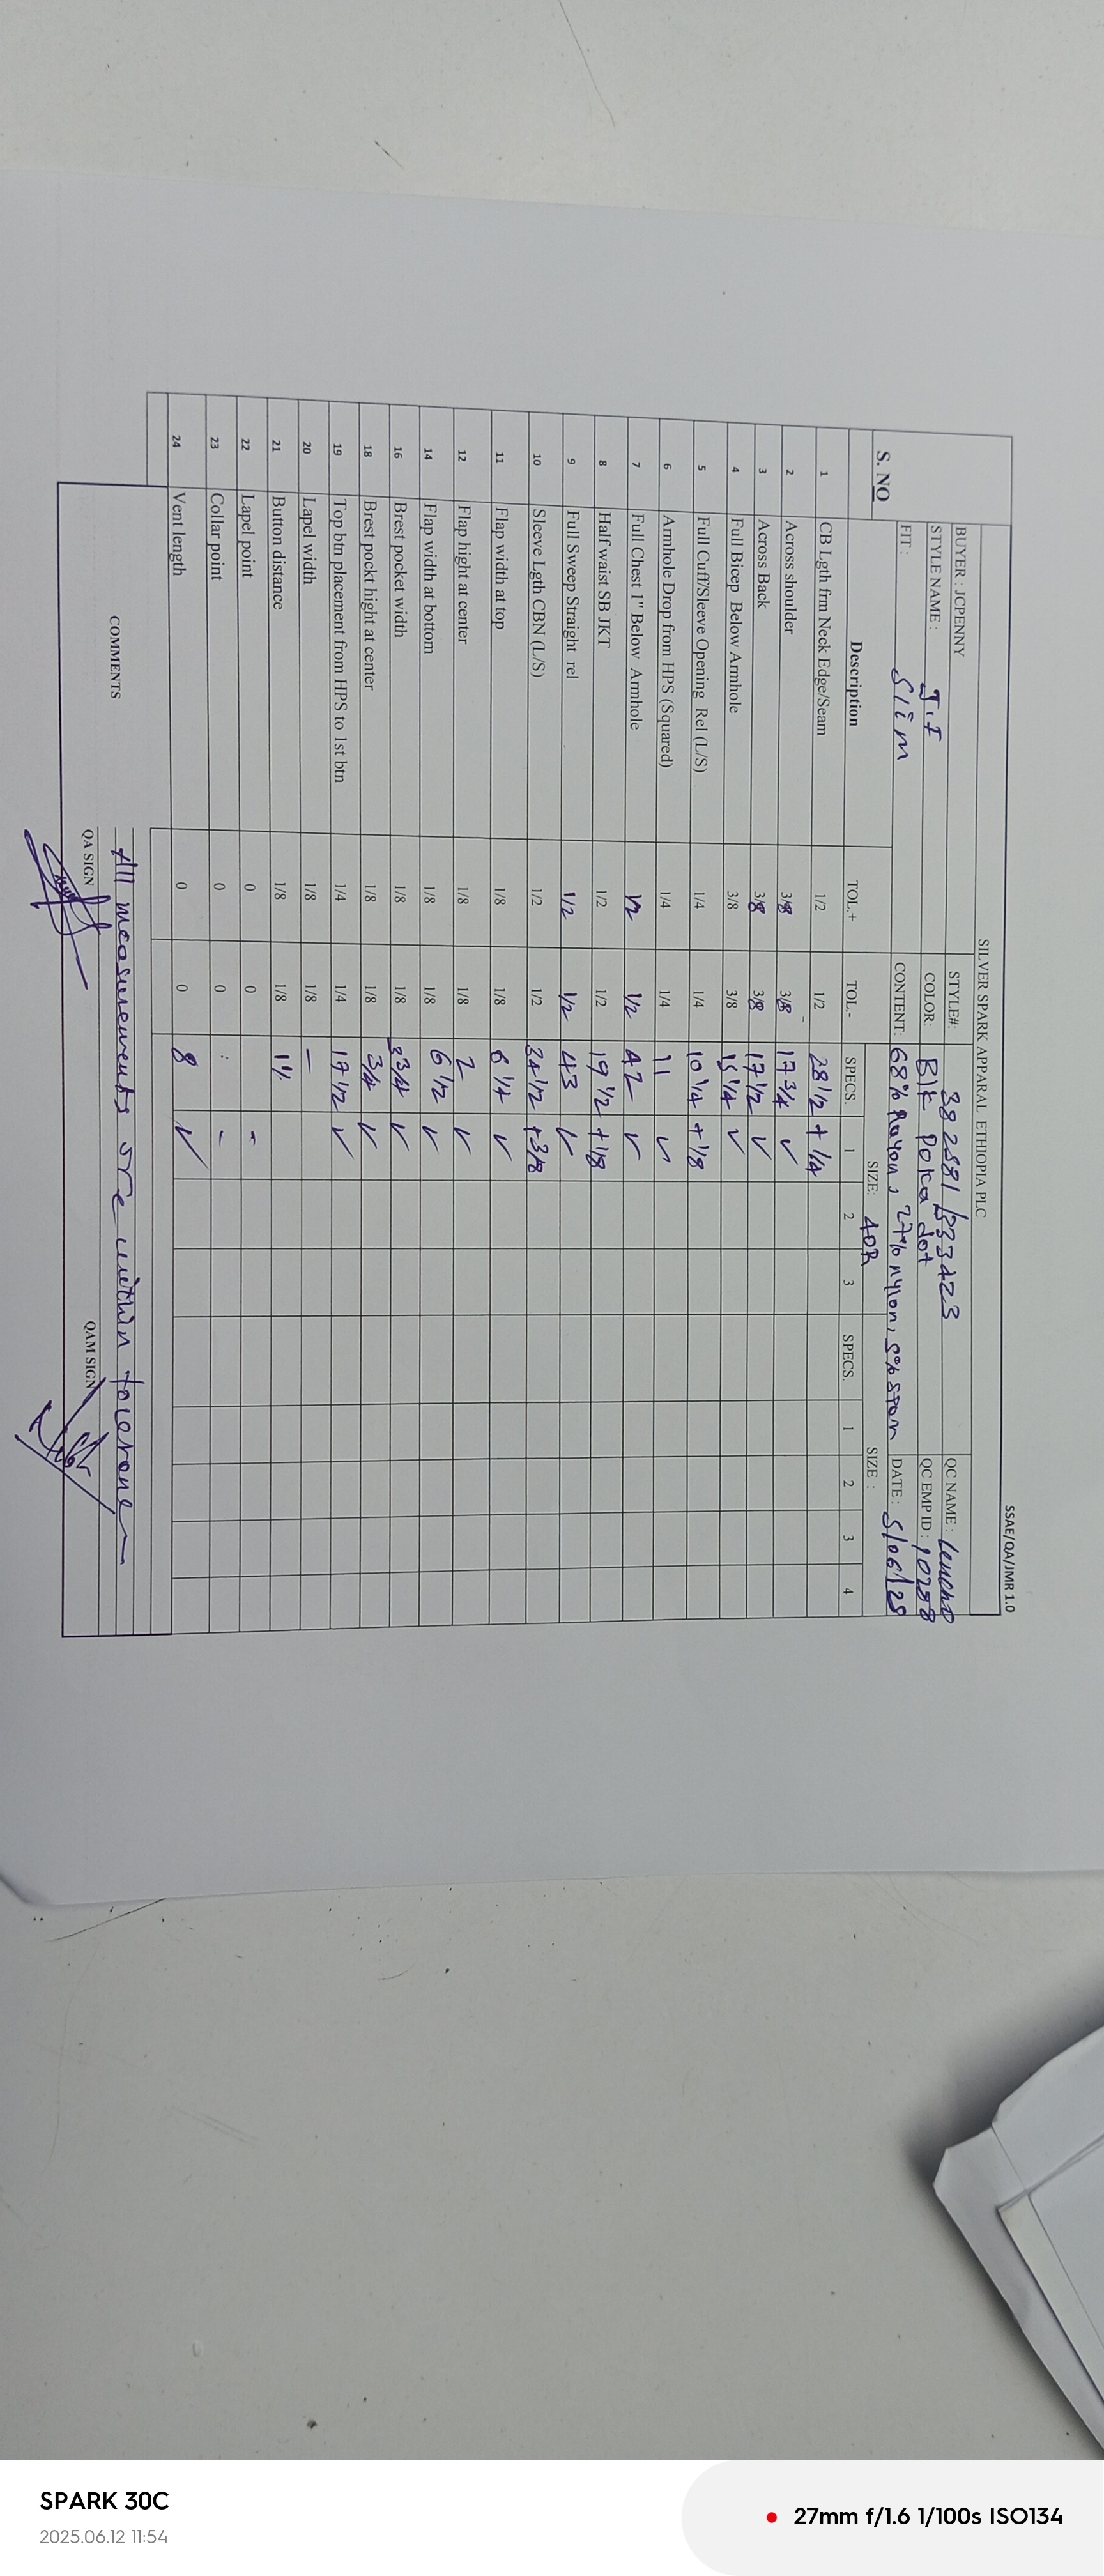 SSAE/QA/JMR 1.0
SILVER SPARK APPARAL ETHIOPIA PLC
BUYER : JCPENNY STYLE#: 382581/333423 QC NAME : Lencho
STYLE NAME : J.F COLOR: Blk Polka dot QC EMP ID : 10288
FIT : Slim CONTENT: 68% Rayon, 27% nylon, 5% span DATE : 5/06/25
S. NO SIZE: 40R SIZE :
Description TOL.+ TOL.- SPECS. 1 2 3 SPECS. 1 2 3 4
1 CB Lgth frm Neck Edge/Seam 1/2 1/2 28 1/2 + 1/4
2 Across shoulder 3/8 3/8 17 3/4 ✓
3 Across Back 3/8 3/8 17 1/2 ✓
4 Full Bicep Below Armhole 3/8 3/8 15 1/4 ✓
5 Full Cuff/Sleeve Opening Rel (L/S) 1/4 1/4 10 1/4 + 1/8
6 Armhole Drop from HPS (Squared) 1/4 1/4 11 ✓
7 Full Chest 1" Below Armhole 1/2 1/2 42 ✓
8 Half waist SB JKT 1/2 1/2 19 1/2 + 1/8
9 Full Sweep Straight rel 1/2 1/2 43 ✓
10 Sleeve Lgth CBN (L/S) 1/2 1/2 34 1/2 + 3/8
11 Flap width at top 1/8 1/8 6 1/4 ✓
12 Flap hight at center 1/8 1/8 2 ✓
14 Flap width at bottom 1/8 1/8 6 1/2 ✓
16 Brest pocket width 1/8 1/8 3 3/4 ✓
18 Brest pockt hight at center 1/8 1/8 3/4 ✓
19 Top btn placement from HPS to 1st btn 1/4 1/4 17 1/2 ✓
20 Lapel width 1/8 1/8 -
21 Button distance 1/8 1/8
22 Lapel point 0 0 -
23 Collar point 0 0 : -
24 Vent length 0 0 8 ✓
COMMENTS All measurements are within tolerance
QA SIGN QAM SIGN
SPARK 30C
2025.06.12 11:54
27mm f/1.6 1/100s ISO134